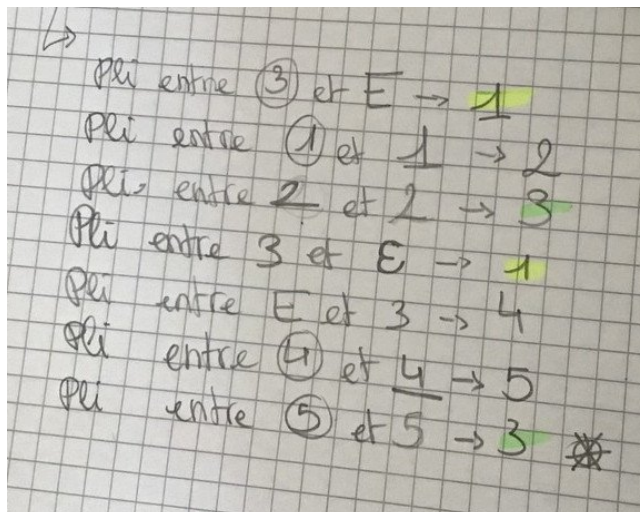 Pli entre ③ et E → 1
Pli entre ① et 1 → 2
Pli entre 2 et 2 → 3
Pli entre 3 et Ɛ → 1
Pli entre E et 3 → 4
Pli entre ④ et 4 → 5
Pli entre ⑤ et 5 → 3